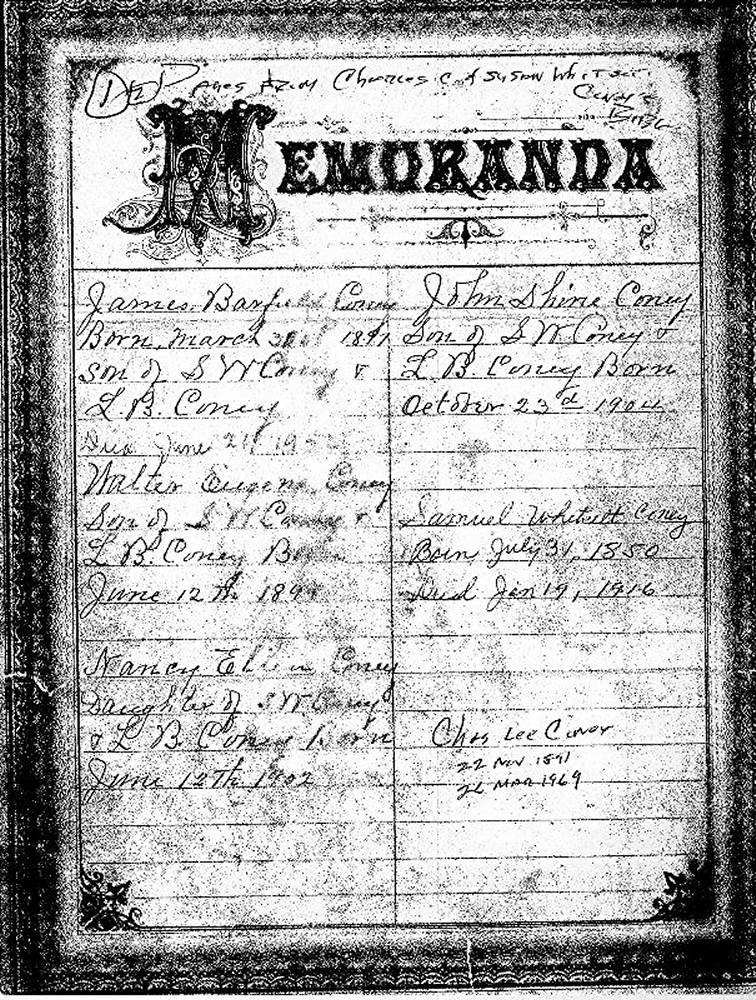 Pages from Charles C. & Susan Whitsett
Coney's
Bible
MEMORANDA
James Barfield Coney
Born, March 1897
Son of S W Coney &
L. B. Coney
Died June 21 19
Walter Eugene Coney
Son of S W Coney &
L B. Coney Born
June 12th 189
Nancy Ellen Coney
Daughter of S W Coney
& L B. Coney Born
June 12th 1902
John Shine Coney
Son of S W Coney &
L. B. Coney Born
October 23d 1904
Samuel Whitsett Coney
Born July 31, 1850
Died Jan 19, 1916
Chas Lee Coney
22 Nov 1891
MAR 1969